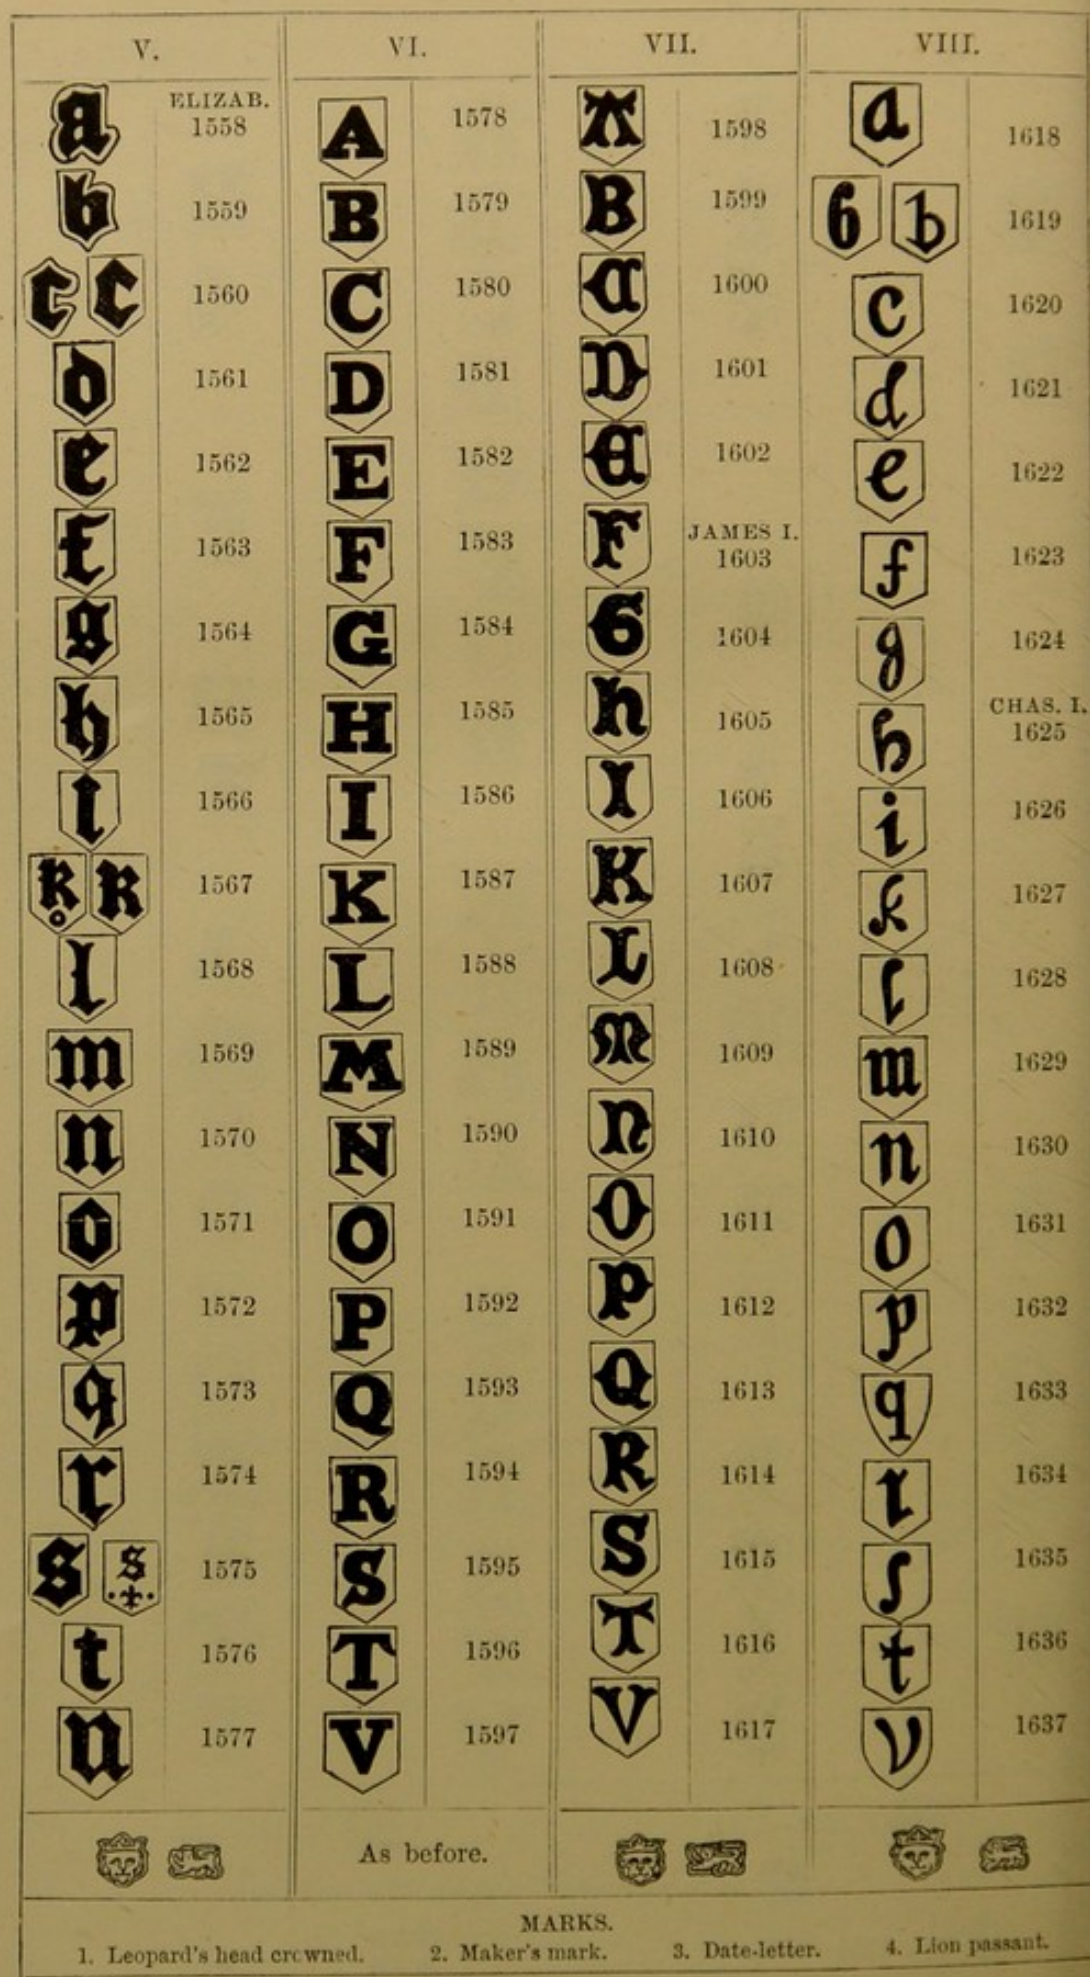 V. VI. VII. VIII.
a ELIZAB. 1558 A 1578 A 1598 a 1618
b 1559 B 1579 B 1599 b b 1619
c c 1560 C 1580 C 1600 c 1620
d 1561 D 1581 D 1601 d 1621
e 1562 E 1582 E 1602 e 1622
f 1563 F 1583 F JAMES I. 1603 f 1623
g 1564 G 1584 G 1604 g 1624
h 1565 H 1585 h 1605 h CHAS. I. 1625
i 1566 I 1586 I 1606 i 1626
k k 1567 K 1587 K 1607 k 1627
l 1568 L 1588 L 1608 l 1628
m 1569 M 1589 M 1609 m 1629
n 1570 N 1590 n 1610 n 1630
o 1571 O 1591 O 1611 o 1631
p 1572 P 1592 P 1612 p 1632
q 1573 Q 1593 Q 1613 q 1633
r 1574 R 1594 R 1614 r 1634
s s 1575 S 1595 S 1615 ſ 1635
t 1576 T 1596 T 1616 t 1636
u 1577 V 1597 V 1617 v 1637
As before.
MARKS.
1. Leopard's head crowned. 2. Maker's mark. 3. Date-letter. 4. Lion passant.